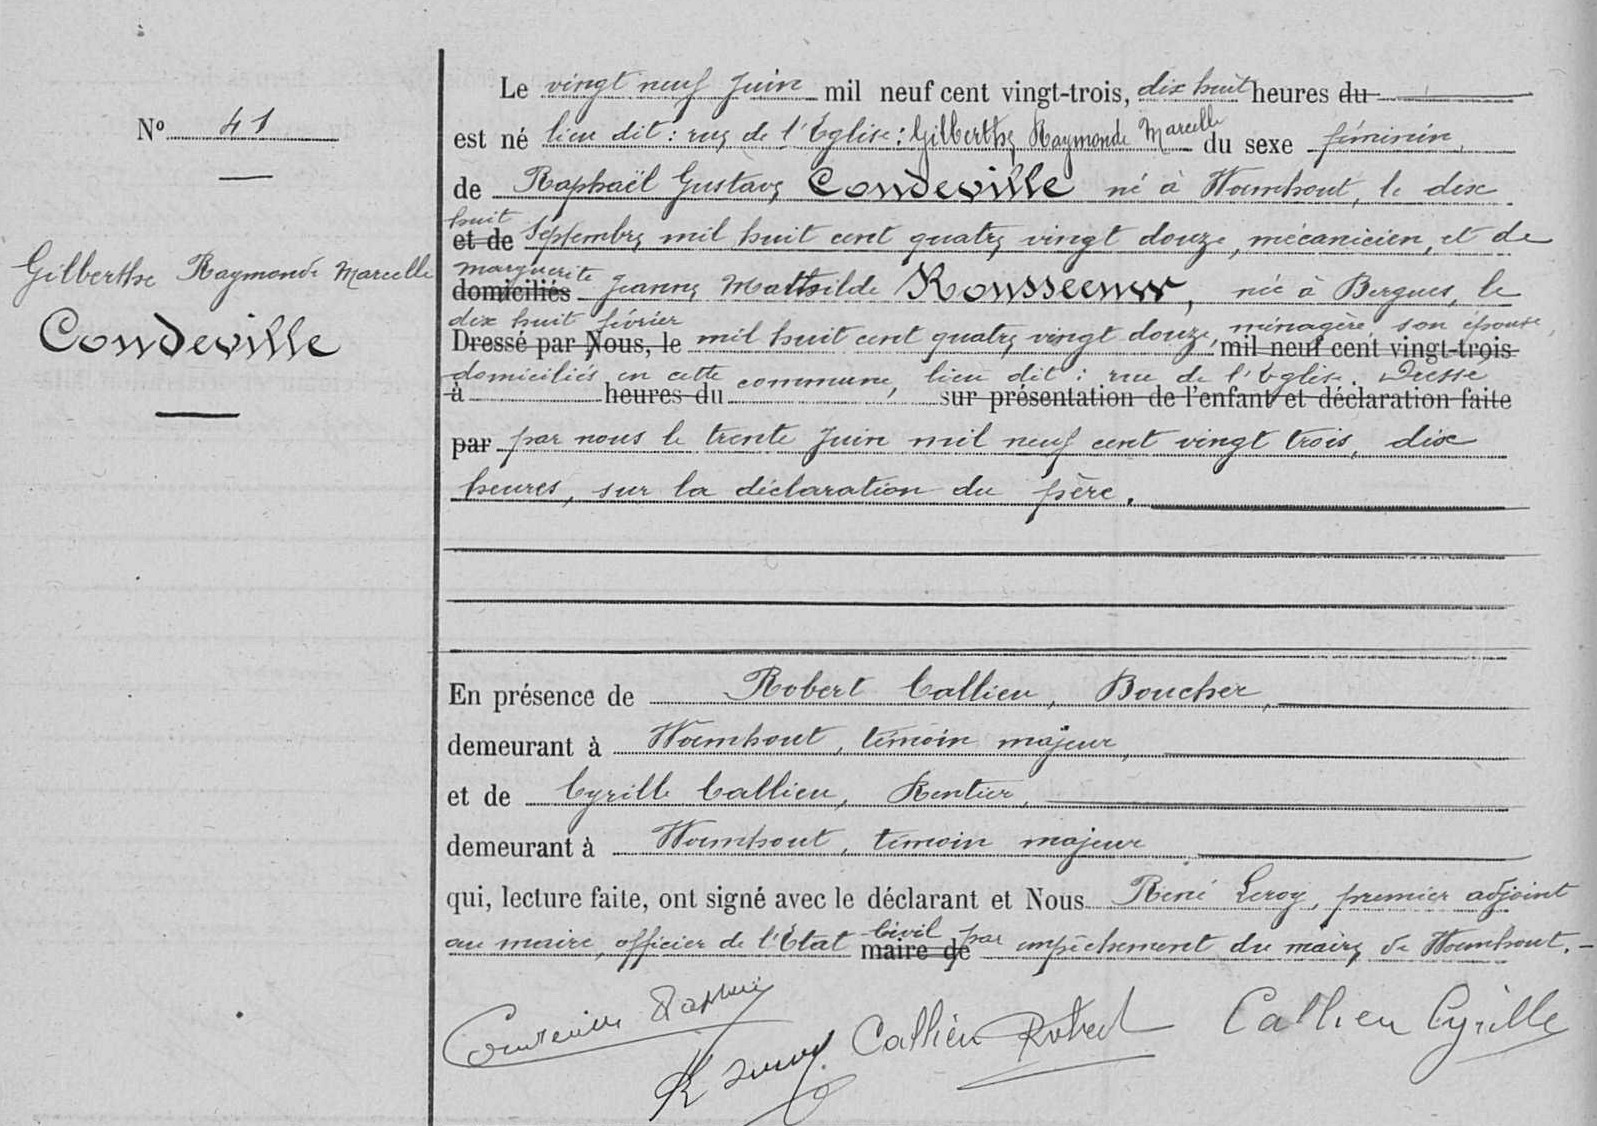 Nº 41
Gilberthe Raymonde Marcelle
Condeville
Le vingt neuf Juin mil neuf cent vingt-trois, dix huit heures du
est né lieu dit : rue de l'Eglise : Gilberthe Raymonde Marcelle du sexe féminin,
de Raphaël Gustave Condeville né à Wormhout, le dix
huit
et de Septembre mil huit cent quatre vingt douze, mécanicien, et de
Marguerite
domiciliés Jeanne Mathilde Rousseeuw, née à Bergues, le
dix huit février ménagère, son épouse,
Dressé par Nous, le mil huit cent quatre vingt douze, mil neuf cent vingt-trois
domiciliés en cette commune, lieu dit : rue de l'Eglise. Dressé
à heures du sur présentation de l'enfant et déclaration faite
par par nous le trente Juin mil neuf cent vingt trois, dix
heures, sur la déclaration du père.
En présence de Robert Callieu, Boucher,
demeurant à Wormhout, témoin majeur,
et de Cyrille Callieu, Rentier,
demeurant à Wormhout, témoin majeur
qui, lecture faite, ont signé avec le déclarant et Nous René Leroy, premier adjoint
Civil par
au maire, officier de l'Etat maire de empêchement du maire de Wormhout.
Condeville Raphaël
Callieu Robert
Callieu Cyrille